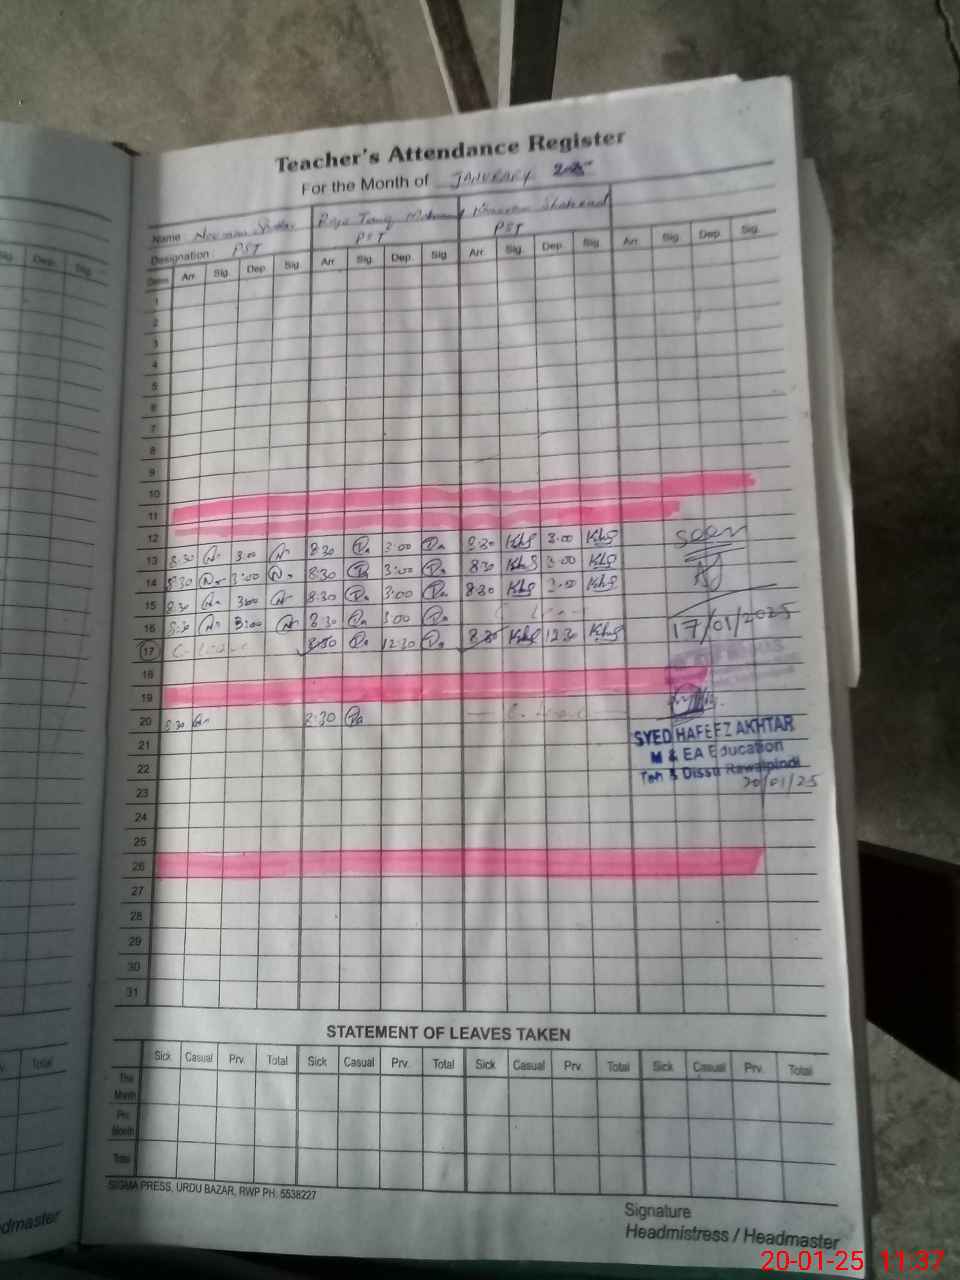 Teacher's Attendance Register
For the Month of JANUARAY 2025
Name
Designation PST PST PST
Dates Arr. Sig. Dep. Sig. Arr. Sig. Dep. Sig. Arr. Sig. Dep. Sig. Arr. Sig. Dep. Sig.
1
2
3
4
5
6
7
8
9
10
11
12
13 8:30 3:00 8:30 3:00 8:30 Khs 3:00 Khs Seen
14 8:30 3:00 8:30 3:00 8:30 Khs 3:00 Khs
15 8:30 3:00 8:30 3:00 8:30 Khs 3:00 Khs
16 8:30 3:00 8:30 3:00 C. Leave 17/01/2025
17 C. Leave 8:30 12:30 8:30 Khs 12:30 Khs
18
19
20 8:30 8:30 C. Leave
21 SYED HAFEEZ AKHTAR
22 M & EA Education
Teh & Distt Rawalpindi
23 20/01/25
24
25
26
27
28
29
30
31
STATEMENT OF LEAVES TAKEN
Sick Casual Prv. Total Sick Casual Prv. Total Sick Casual Prv. Total Sick Casual Prv. Total
The Month
Pre. Month
Total
SIGMA PRESS, URDU BAZAR, RWP PH: 5538227
Signature
Headmistress / Headmaster
Sig. Dep. Sig.
v. Total
dmaster
20-01-25 11:37